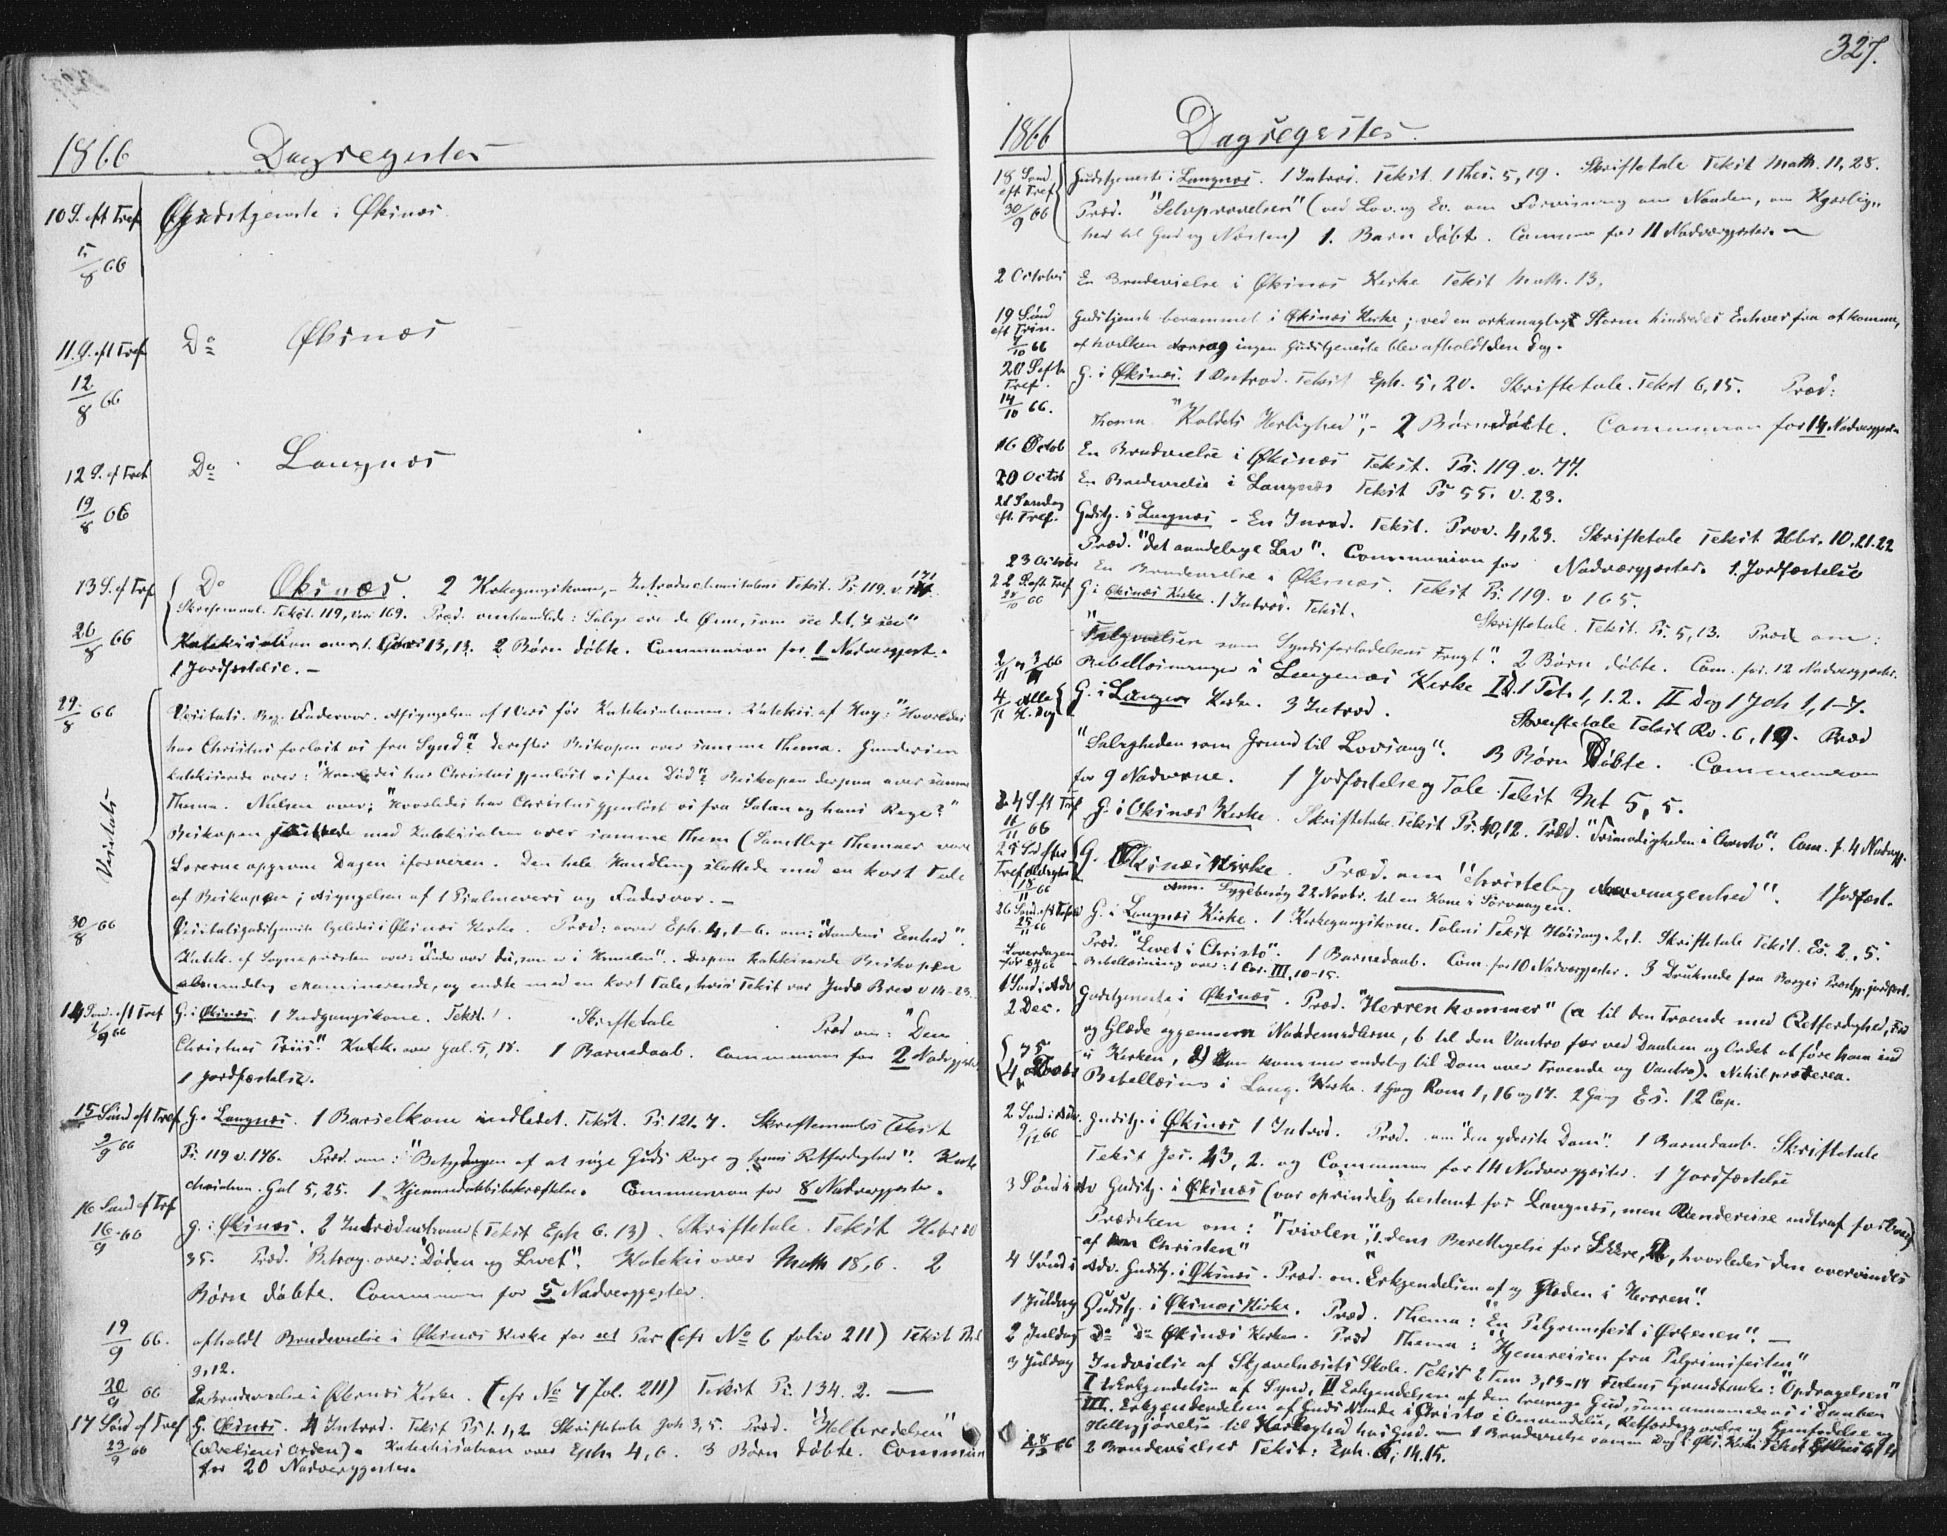 1866 Dagregister
10 S. eft Tref Gudstjeneste i Øksnæs.
5/8 66
11 S. eft Tref Do Øksnæs
12/8 66
12 S. ef Tref Do Langnæs
19/8 66
13 S. ef Tref Do Øksnæs. 2 Kirkegangskone, – Introductionstalens Tekst. Ps. 119. v. 171
Skriftemaal. Tekst. 119, Vers 169. Præd. omhandlede: Salige ere de Øine, som see det, I see"
26/8 66 Katekisation 13,13. 2 Børn døbte. Communion for 1 Nadvergjest.
1 Jordfæstelse. –
29/8 66 Visitats. Beg. Fadervor. Afsyngelsen af 1 Vers før Katekisationen. Katekis. af Hag: "Hvorledes
har Christus forløst os fra Synd"? derefter Biskopen over samme Thema. Gundersen
katekiserede over: "Hvorledes har Christus gjenløst os fra Død"? Biskopen derpaa over samme
Thema. Nielsen over; "Hvorledes har Christus gjenløst os fra Satan og hans Rige?"
Visitats Biskopen sluttede med Katekisation over samme Them (Samtlige Themaer vare
Lærerne opgivne Dagen iforveien. Den hele Handling sluttede med en kort Tale
af Biskopen; Afsyngelsen af 1 Psalmevers og Fadervor. –
30/8 66 Visitatsgudstjeneste ligeledes i Øksnæs Kirke. Præd: over Eph. 4, 1–6. om: "Aandens Eenhed".
Katek. af Sognepræsten over: "Fader vor du, som er i Himlen". Derpaa Katekiserede Biskopen
almindelig examinerende, og endte med en kort Tale, hvis Tekst var Judæ Brev v 14–23.
14 Sønd. eft Tref G. i Øksnæs. 1 Indgangskone. Tekst. Skriftetale Præd om: "Den
2/9 66 Christnes Priis". Katek. over Gal. 5, 18. 1 Barnedaab. Communion for 2 Nadvergjester
1 Jordfæstelse.
15 Sønd eft Tref G. Langnæs. 1 Barselkone indledet. Tekst. Ps. 121. 7. Skriftemaals Tekst
9/9 66 Ps. 119 v. 176. Præd. om: "Betydningen af at søge Guds Rige og hans Retfærdighed". Kate
chisation. Gal 5, 25. 1 Hjemmedaabsbekræftelse. Communion for 8 Nadvergjester.
16 Sønd ef Tref G. i Øksnæs. 2 (Tekst Eph 6. 13). Skriftetale. Tekst Hebr 10
16/9 66 35. Præd. Betrag. over: "Døden og Livet". Katekis over Math 18, 6. 2
Børn døbte. Communion for 5 Nadvergjester.
19/9 66. afholdt Brudevielse i Øksnæs Kirke for et Par (cfr No 6 folio 211) Tekst
9,12.
20/9 66 En Brudevielse i Øksnæs Kirke. (cfr No 7 fol. 211) Tekst Ps. 134. 2. –
17 Sønd ef Tref G. Øksnæs. 4 Introd. Tekst Ps. 1. 1,2 Skriftetale Joh 3, 5. Præd. "Helbredelsen"
23/9 66 Katechisation over Eph. 4, 6. 3 Børn døbte. Communion
for 20 Nadvergjester.
327.
1866 Dagregister.
18 Sønd eft Tref Gudstjeneste i Langnæs. 1 Introd. Tekst. 1 Thes. 5, 19. Skriftetale Tekst Math. 11, 28.
30/9 66 Præd. "Selvprøvelsen" (ved Lov. og Ev. om Forvisning om Naaden, om Kjærlig-
hed til Gud og Næsten) 1. Barn døbt. Commun for 11 Nadvergjester. –
2 October En Brudevielse i Øksnæs Kirke Tekst Math. 13,
19 Sønd eft Trin. Gudstjenest berammet i Øksnæs Kirke; ved en orkanagtig Storm hindredes Enhver fra at komme,
7/10 66 af hvilken ingen Gudstjeneste blev afholdt den Dag.
20 S eft Tref. G. i Øksnæs. 1 Introd. Tekst Eph. 5, 20. Skriftetale. Tekst 6, 15. Præd:
14/10 66. Thema "Kaldets Herlighed", – 2 Børn døbte. Communion for 14 Nadvergjester
16 Octob En Brudvielse i Øksnæs Tekst. Ps. 119. v. 77.
20 Octob En Brudevielse i Langnæs Tekst Ps 55. v. 23.
21 Søndag eft. Tref. Gudstj. i Langnæs – En Introd. Tekst. Prov. 4, 23. Skriftetale Tekst Hebr. 10, 21. 22
Præd. "det aandelige Liv". Communion for Nadvergjester. 1 Jordfæstelse
23 October En Brudevielse i Øksnæs. Tekst Ps. 119. v 165.
22 S. eft Tref G. i Øksnæs Kirke. 1 Introd. Tekst. Skriftetale. Tekst. Ps. 5, 13. Præd om:
28/10 66 som Syndsforladelsens Frugt". 2 Børn døbte. Com. for. 12 Nadvergjester.
2/11 og 3/11 66 Bibellæsninger i Langenæs Kirke I D. 1 Pet. 1, 1. 2. II Dag 1 Joh 1, 1–7.
4/11 Alle H. Dag G. i Langnæs Kirke. 3 Introd. Skriftetale Tekst Rv. 6, 19. Præd
"Saligheden som Grund til Lovsang". 3 Børn Døbte. Communion
for 9 Nadverne. 1 Jordfæstelse og Tale. Tekst Mt 5, 5.
24 S. eft Tref G. i Øksnæs Kirke. Skriftetale. Tekst Ps: 40, 12. Præd. "Frimodigheden i Christo". Com. f. 4 Nadvgj.
11/11 66
25 S. efter Tref G. Øksnæs Kirke. Præd. om "Christelig ". 1 Jordfæst.
18/11 66 Anm. Sygebesøg 22 Novbr. til en Kone i Sørvaagen.
26 Sønd. eft Tref G. i Langnæs Kirke. 1 Kirkegangskone. Talens Tekst Høisang. 2, 1. Skriftetale Tekst. Es. 2, 5.
25/11 66 Præd. "Livet i Christo". 1 Barnedaab. Com. for 10 Nadvergjester. 3 Druknede fra Borges Præstgj. jordfæst.
Løverdagen før Bibellæsning over: 1 Cor. III, 10–15.
1 Sønd i Adv 2 Dec. Gudstjeneste i Øksnæs. Præd. "Herren kommer" (a til den Troende med Retfærdighed, Fre
og Glæde gjennem Naademidlerne, b til den Vantro før ved Daaben og Ordet at føre ham ind
i Kirken, 2) Han kommer endelig til Dom over Troende og Vantro). Nihil præterea.
Bibellæsning i Lang. Kirke. 1 Gang Rom 1, 16 og 17. 2 Gang Es. 12 Cap.
2 Sønd i Adv. Gudstj. i Øksnæs 1 Introd. Præd. om "den yderste Dom". 1 Barnedaab. Skriftetale
9/12 66 Tekst Jes. 43, 2. og Communion for 14 Nadvergjester. 1 Jordfæstelse
3 Sønd i Adv Gudstj. i Øksnæs (var oprindelig bestemt for Langnæs, men indtraf
Prædiken om: "Tvivlen", 1. dens Berettigelse for , 2, hvorledes den overvindes
af en Christen"
4 Sønd i Adv. Gudstj. i Øksnæs. Præd. om. "Erkjendelsen af og Glæden i Herren".
1 Juldag Gudstj. i Øksnæs Kirke. Præd. Thema: "En Pilgrimsfest i Ørkenen". –
2 Juldag Do Do Øksnæs Kirken. Præd Thema: "Hjemreisen fra Pilgrimsfesten"
3 Juldag Indvielse af Skjævelnæsets Skole. Tekst 2 Tim 3, 13–17 Talens Grundtanke: "Opdragelsen"
I Erkjendelsen af Synd, II Erkjendelsen af den treenige Gud, som annammede os i Daaben
III. Erkjendelsen af Guds Naade i Christo i Anvendelse, Retfærdiggjørelse og Gjenfødelse og
Helliggjørelse til Herlighed hos Gud. – 1 Brudevielse samme Dag i Øks. Kirke Tekst
28/12 66 2 Brudevielser Tekst: Eph. 6, 14. 15.